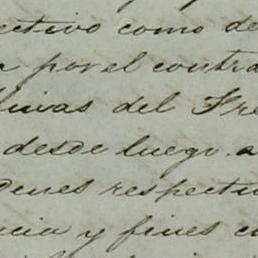 ectivo como de
a por el contra
tivas del Fre
desde luego a
denes respecti
ncia y fines c